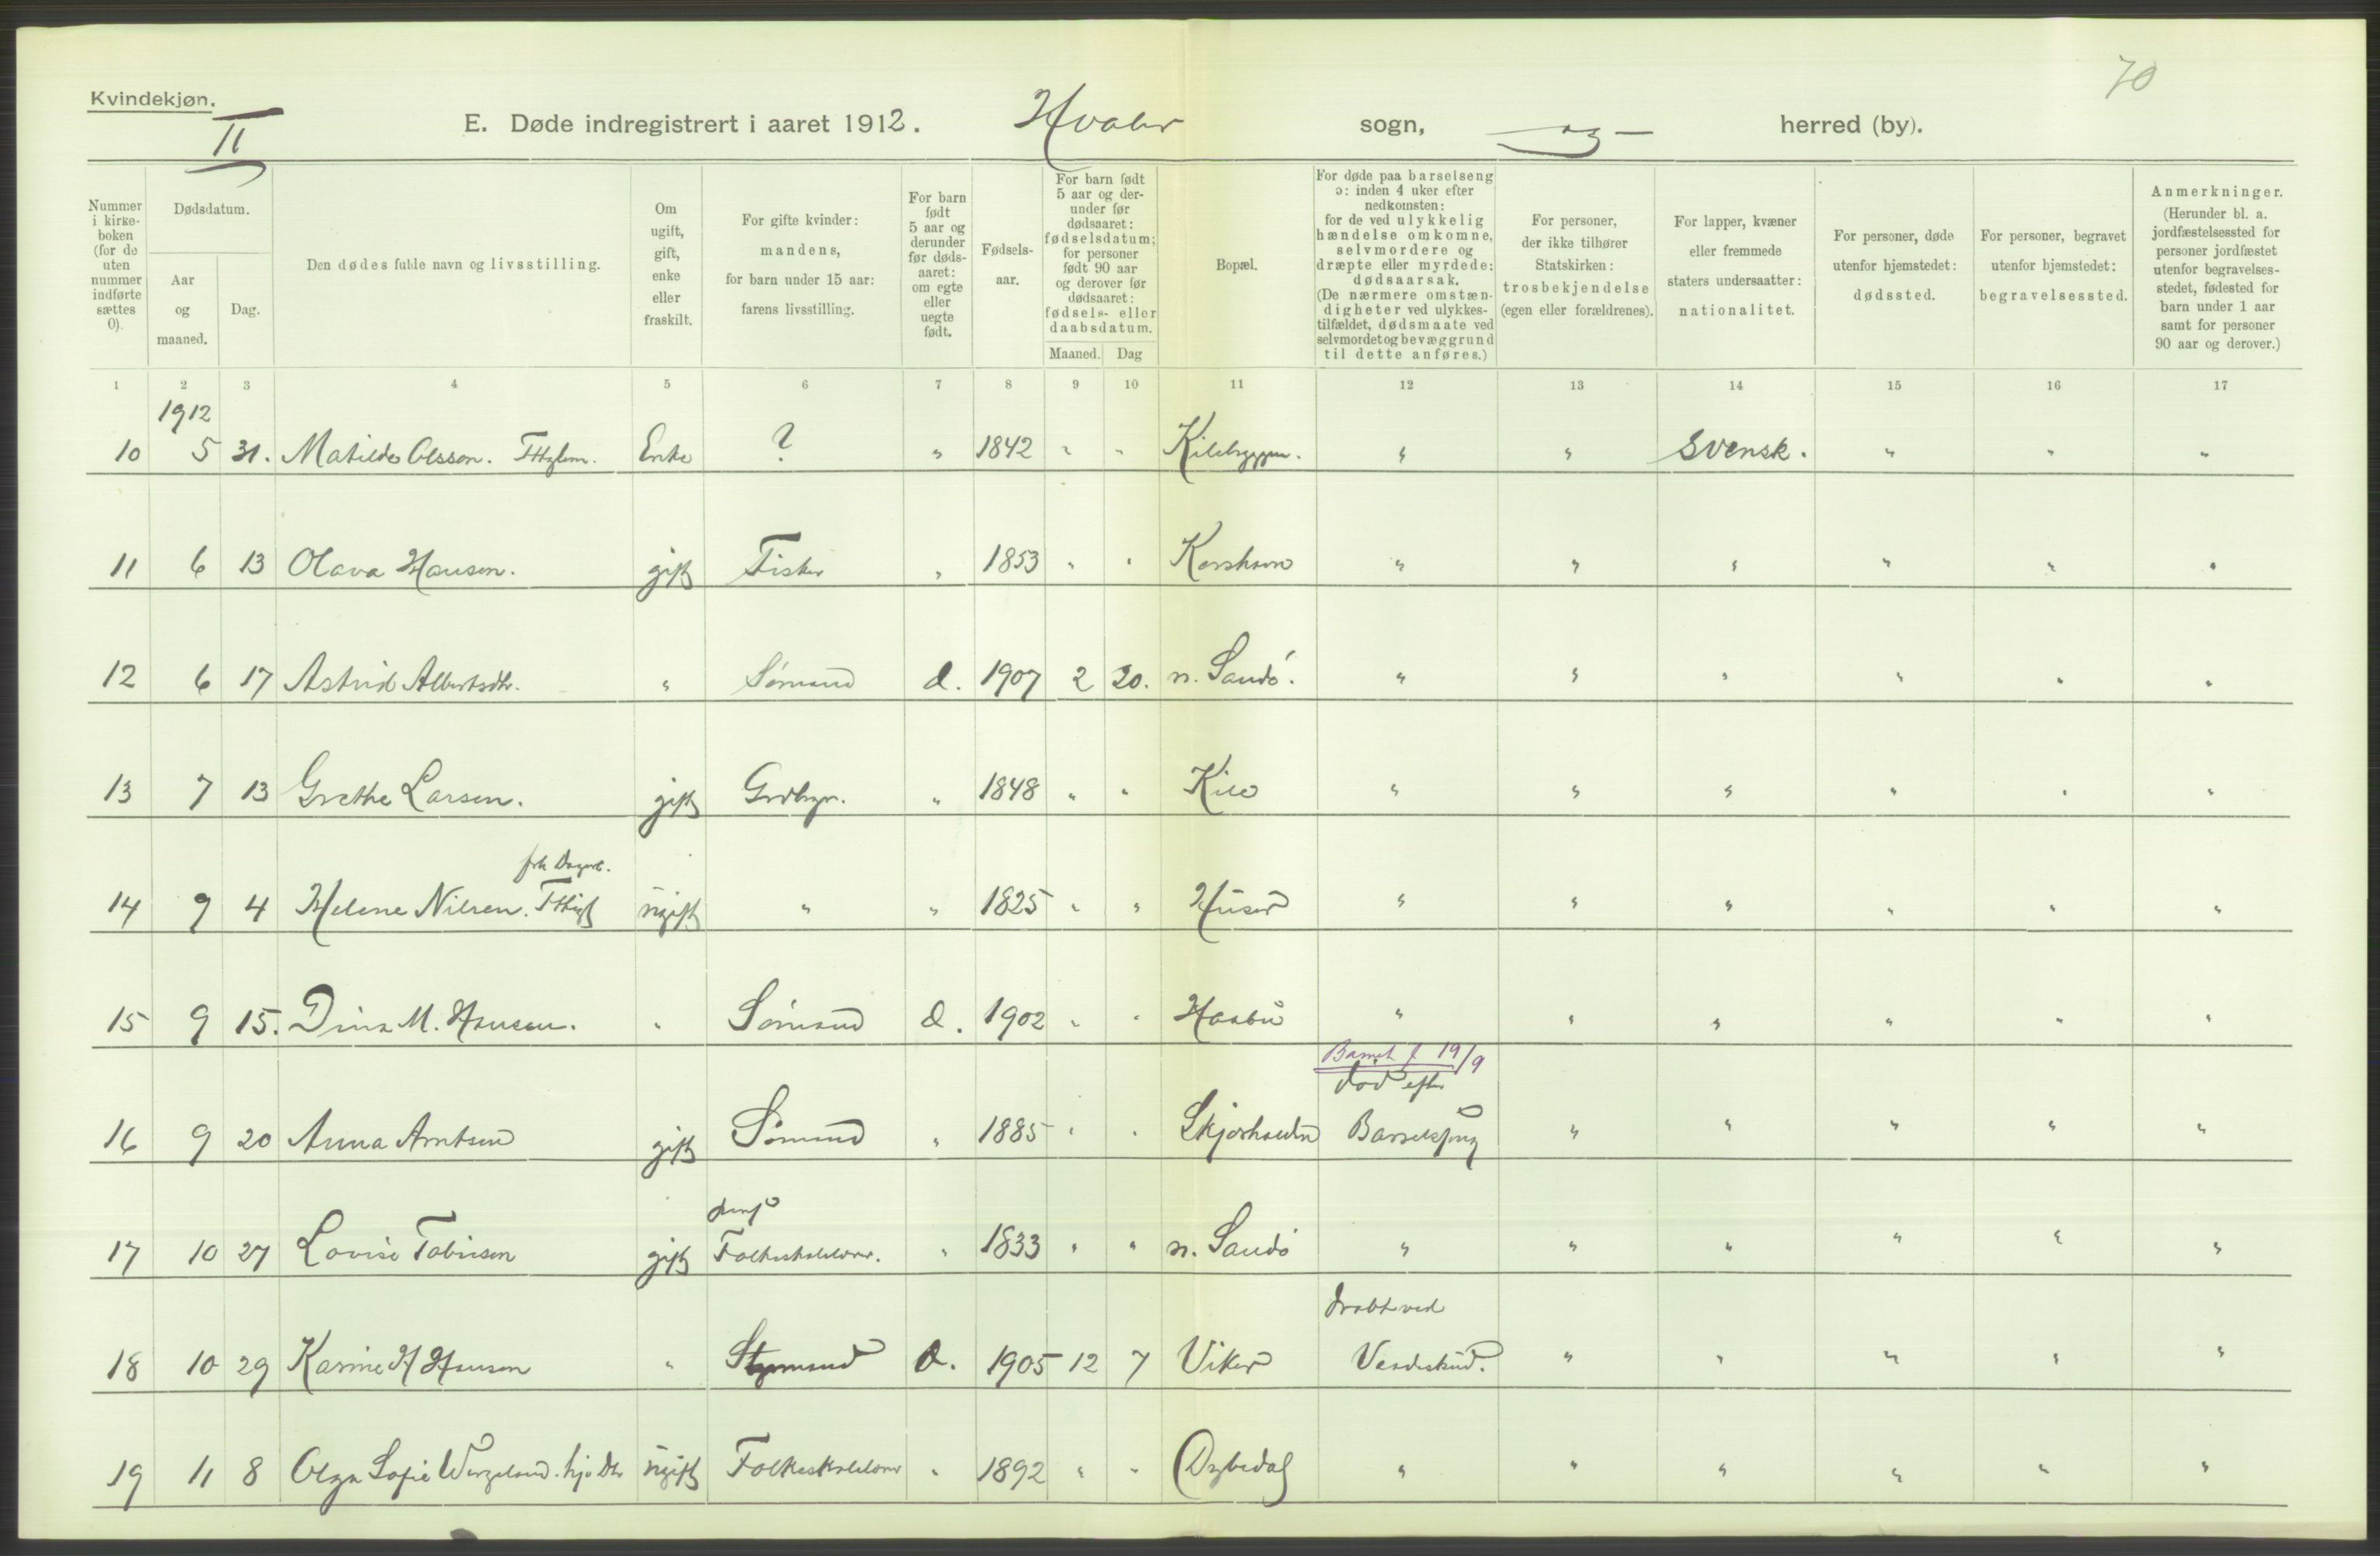 70
Kvindekjøn.
II
E. Døde indregistrert i aaret 1912. Hvaler sogn, " herred (by).
Nummer i kirkeboken (for de uten nummer indførte sættes 0).
Dødsdatum.
Aar og maaned.
Dag.
Den dødes fulde navn og livsstilling.
Om ugift, gift, enke eller fraskilt.
For gifte kvinder: mandens, for barn under 15 aar: farens livsstilling.
For barn født 5 aar og derunder før dødsaaret: om egte eller uegte født.
Fødselsaar.
For barn født 5 aar og derunder før dødsaaret: fødselsdatum; for personer født 90 aar og derover før dødsaaret: fødsels- eller daabsdatum.
Maaned. Dag
Bopæl.
For døde paa barselseng ɔ: inden 4 uker efter nedkomsten: for de ved ulykkelig hændelse omkomne, selvmordere og dræpte eller myrdede: dødsaarsak. (De nærmere omstændigheter ved ulykkestilfældet, dødsmaate ved selvmordet og bevæggrund til dette anføres.)
For personer, der ikke tilhører Statskirken: trosbekjendelse (egen eller forældrenes).
For lapper, kvæner eller fremmede staters undersaatter: nationalitet.
For personer, døde utenfor hjemstedet: dødssted.
For personer, begravet utenfor hjemstedet: begravelsessted.
Anmerkninger. (Herunder bl. a. jordfæstelsessted for personer jordfæstet utenfor begravelsesstedet, fødested for barn under 1 aar samt for personer 90 aar og derover.)
1 2 3 4 5 6 7 8 9 10 11 12 13 14 15 16 17
1912
10 5 31. Matilde Olsson. Enke ? " 1842 " " " " Svensk. " " "
11 6 13 Olava Hansen. gift Fisker " 1853 " " Korshavn " " " " " "
12 6 17 Astrid Albertsdtr. " Sømand d. 1907 2 20. n. Sandø. " " " " " "
13 7 13 Grethe Larsen. gift Grdbrgr. " 1848 " " Kile " " " " " "
14 9 4 Helene Nilsen. ugift " " 1825 " " Huser " " " " " "
15 9 15. Dina M. Hansen. " Sømand d. 1902 " " Haabu " " " " " "
Barnet f 19/9
død efter
16 9 20 Anna Arntsen gift Sømand " 1885 " " Skjærhalden Barselseng " " " " "
17 10 27 Lovise Tobiesen gift Folkeskolelærer. " 1833 " " n. Sandø " " " " " "
dræbt ved
18 10 29 Karine H Hansen " Styrmand d. 1905 12 7 Viker Vaadeskud. " " " " "
19 11 8 Olga Sofie Wergeland. hj. Dtr ugift Folkeskolelærer " 1892 " " Dybedal " " " " " "